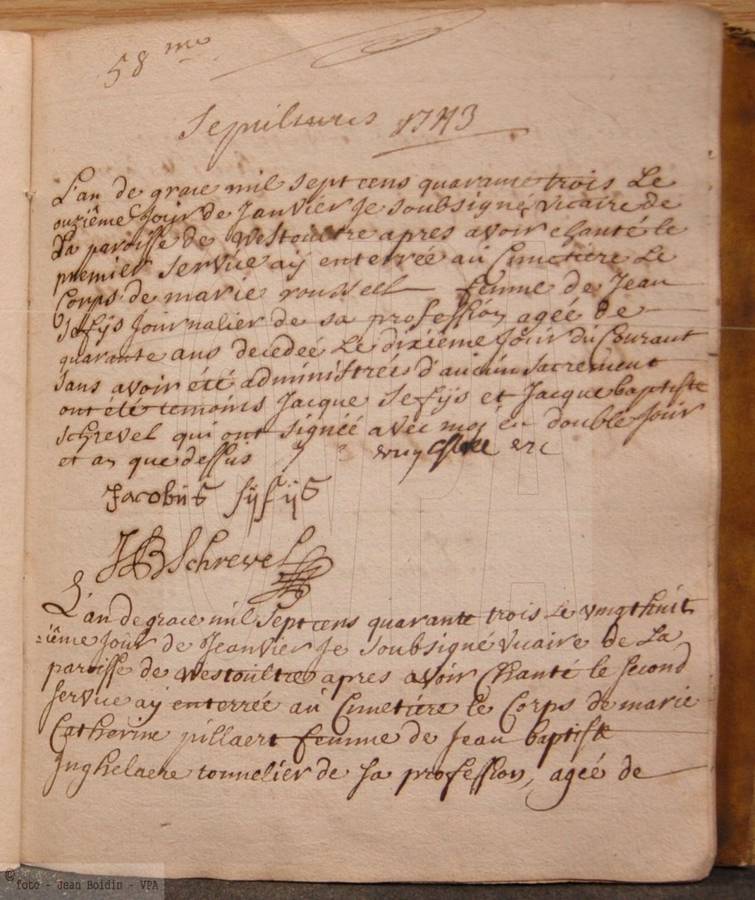 58 me
Sepultures 1743
L'an de grace mil sept cens quarante trois Le
onzième Jour de Janvier Je soubsigné vicaire de
La paroisse de Westoutre apres avoir chanté le
premier service ay enterrée au Cimetiere Le
Corps de marie roussell femme de Jean
Sefijs Journalier de sa profession agée de
quarante ans decedeé Le dixième Jour du Courant
sans avoir été administrée d'aucun sacrement
ont été temoins Jacque Sefijs et Jacque baptiste
schrevel qui ont signée avec moj en double Jour
et an que dessus
Jacobus sijfijs
JB Schrevel
L'an de grace mil Sept cens quarante trois Le vingt huit
ième Jour de Jeanvier Je soubsigné vicaire de La
paroisse de westoultre apres avoir Chanté le second
service ay enterrée au Cimetiere le Corps de marie
Catherine pillaert femme de Jean baptiste
Inghelaere tonnelier de sa profession, ageé de
© foto - Jean Boidin - VPA